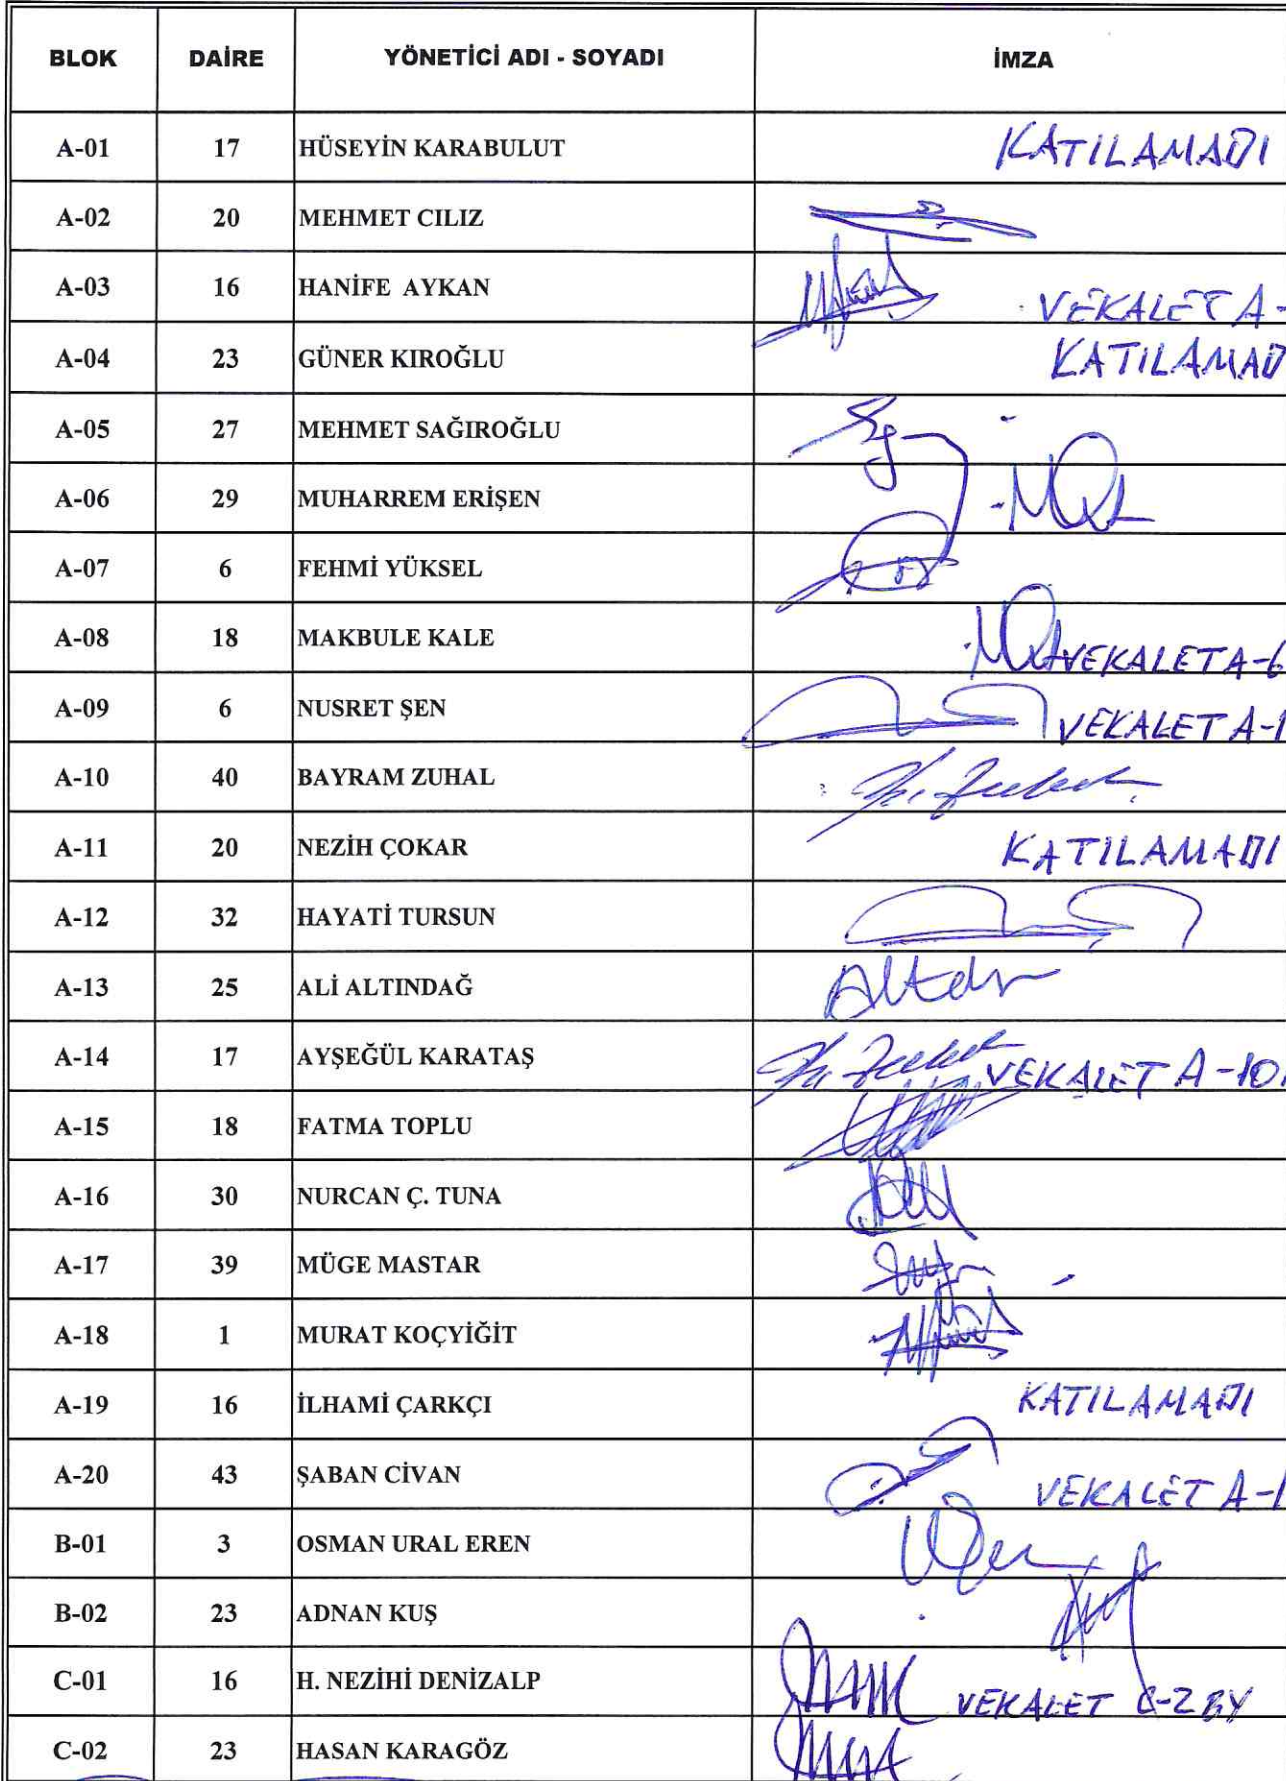 BLOK DAİRE YÖNETİCİ ADI - SOYADI İMZA
A-01 17 HÜSEYİN KARABULUT KATILAMADI
A-02 20 MEHMET CILIZ
A-03 16 HANİFE AYKAN VEKALET A-
A-04 23 GÜNER KIROĞLU KATILAMAD
A-05 27 MEHMET SAĞIROĞLU
A-06 29 MUHARREM ERİŞEN
A-07 6 FEHMİ YÜKSEL
A-08 18 MAKBULE KALE VEKALET A-6
A-09 6 NUSRET ŞEN VEKALET A-1
A-10 40 BAYRAM ZUHAL
A-11 20 NEZİH ÇOKAR KATILAMADI
A-12 32 HAYATİ TURSUN
A-13 25 ALİ ALTINDAĞ
A-14 17 AYŞEĞÜL KARATAŞ VEKALET A-10
A-15 18 FATMA TOPLU
A-16 30 NURCAN Ç. TUNA
A-17 39 MÜGE MASTAR
A-18 1 MURAT KOÇYİĞİT
A-19 16 İLHAMİ ÇARKÇI KATILAMADI
A-20 43 ŞABAN CİVAN VEKALET A-1
B-01 3 OSMAN URAL EREN
B-02 23 ADNAN KUŞ
C-01 16 H. NEZİHİ DENİZALP VEKALET C-2 BY
C-02 23 HASAN KARAGÖZ